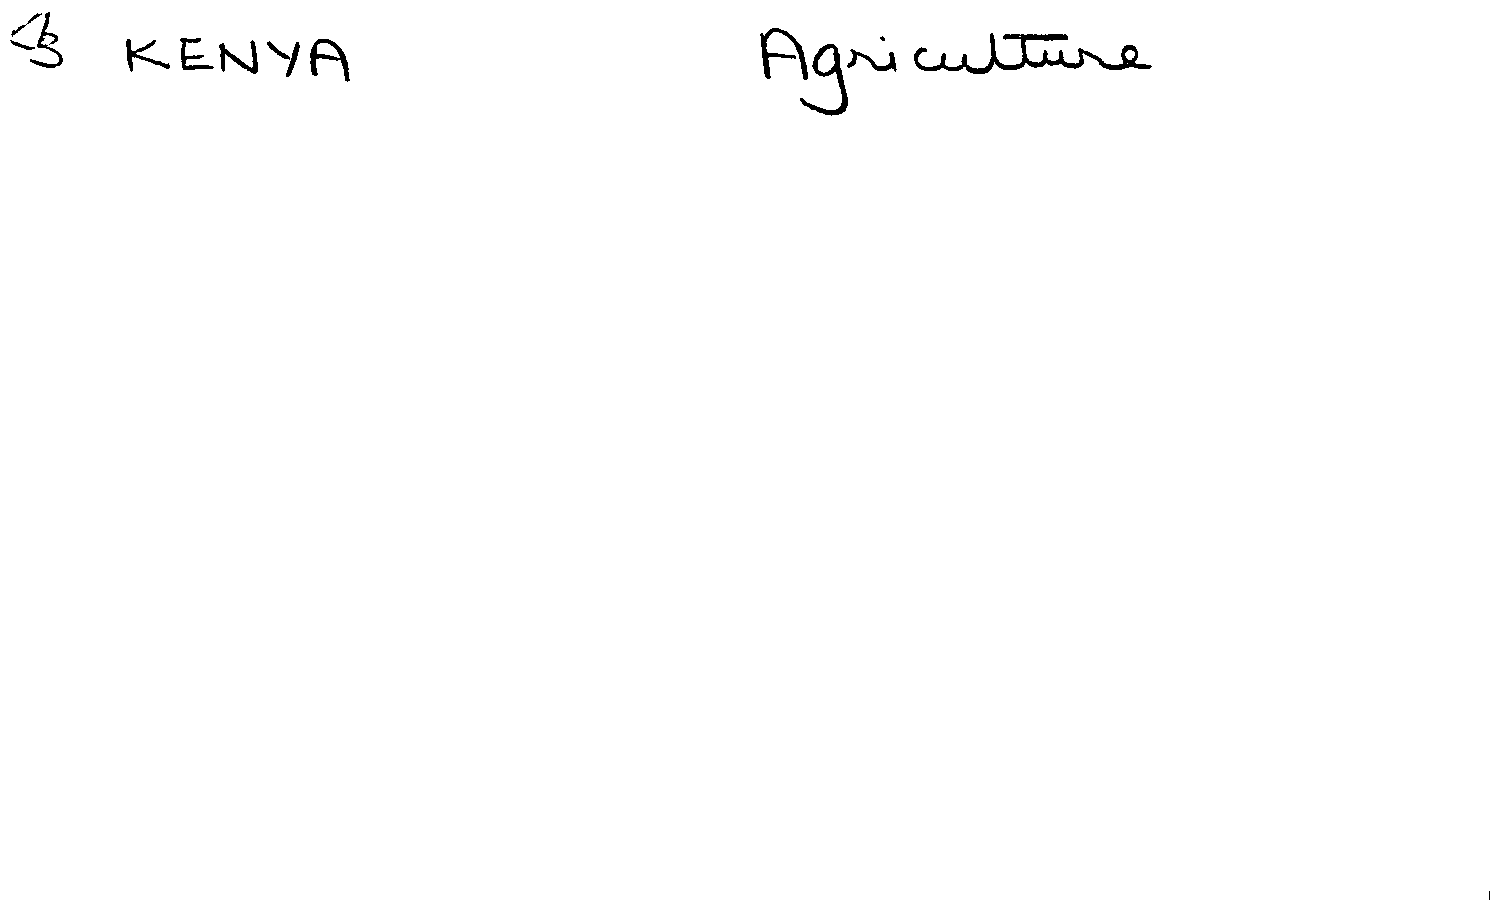 KENYA Agriculture